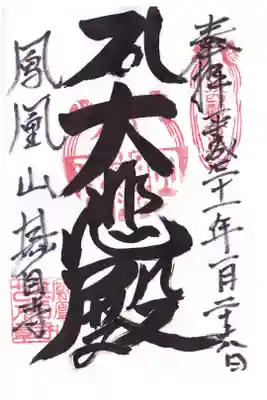 奉拝 平成二十一年一月二十六日
大悲殿
鳳凰山甚目寺